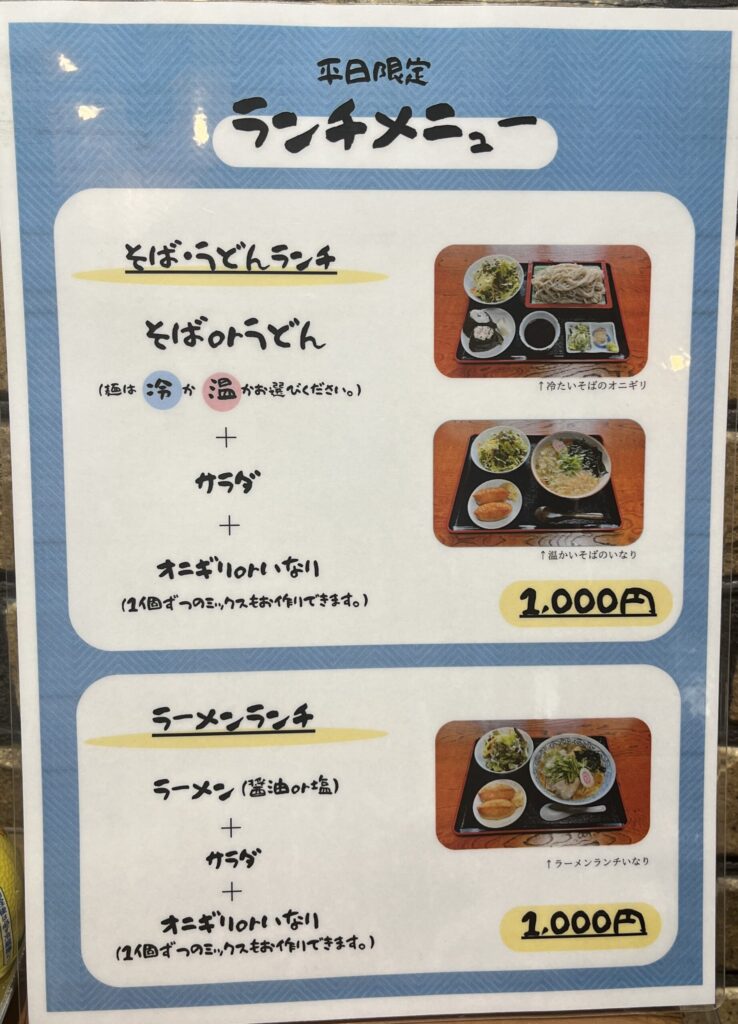 平日限定
ランチメニュー
そば・うどんランチ
そばorうどん
(麺は 冷 か 温 かお選びください。)
+
サラダ
+
オニギリorいなり
(1個ずつのミックスもお作りできます。)
↑冷たいそばのオニギリ
↑温かいそばのいなり
1,000円
ラーメンランチ
ラーメン(醤油or塩)
+
サラダ
+
オニギリorいなり
(1個ずつのミックスもお作りできます。)
↑ラーメンランチいなり
1,000円